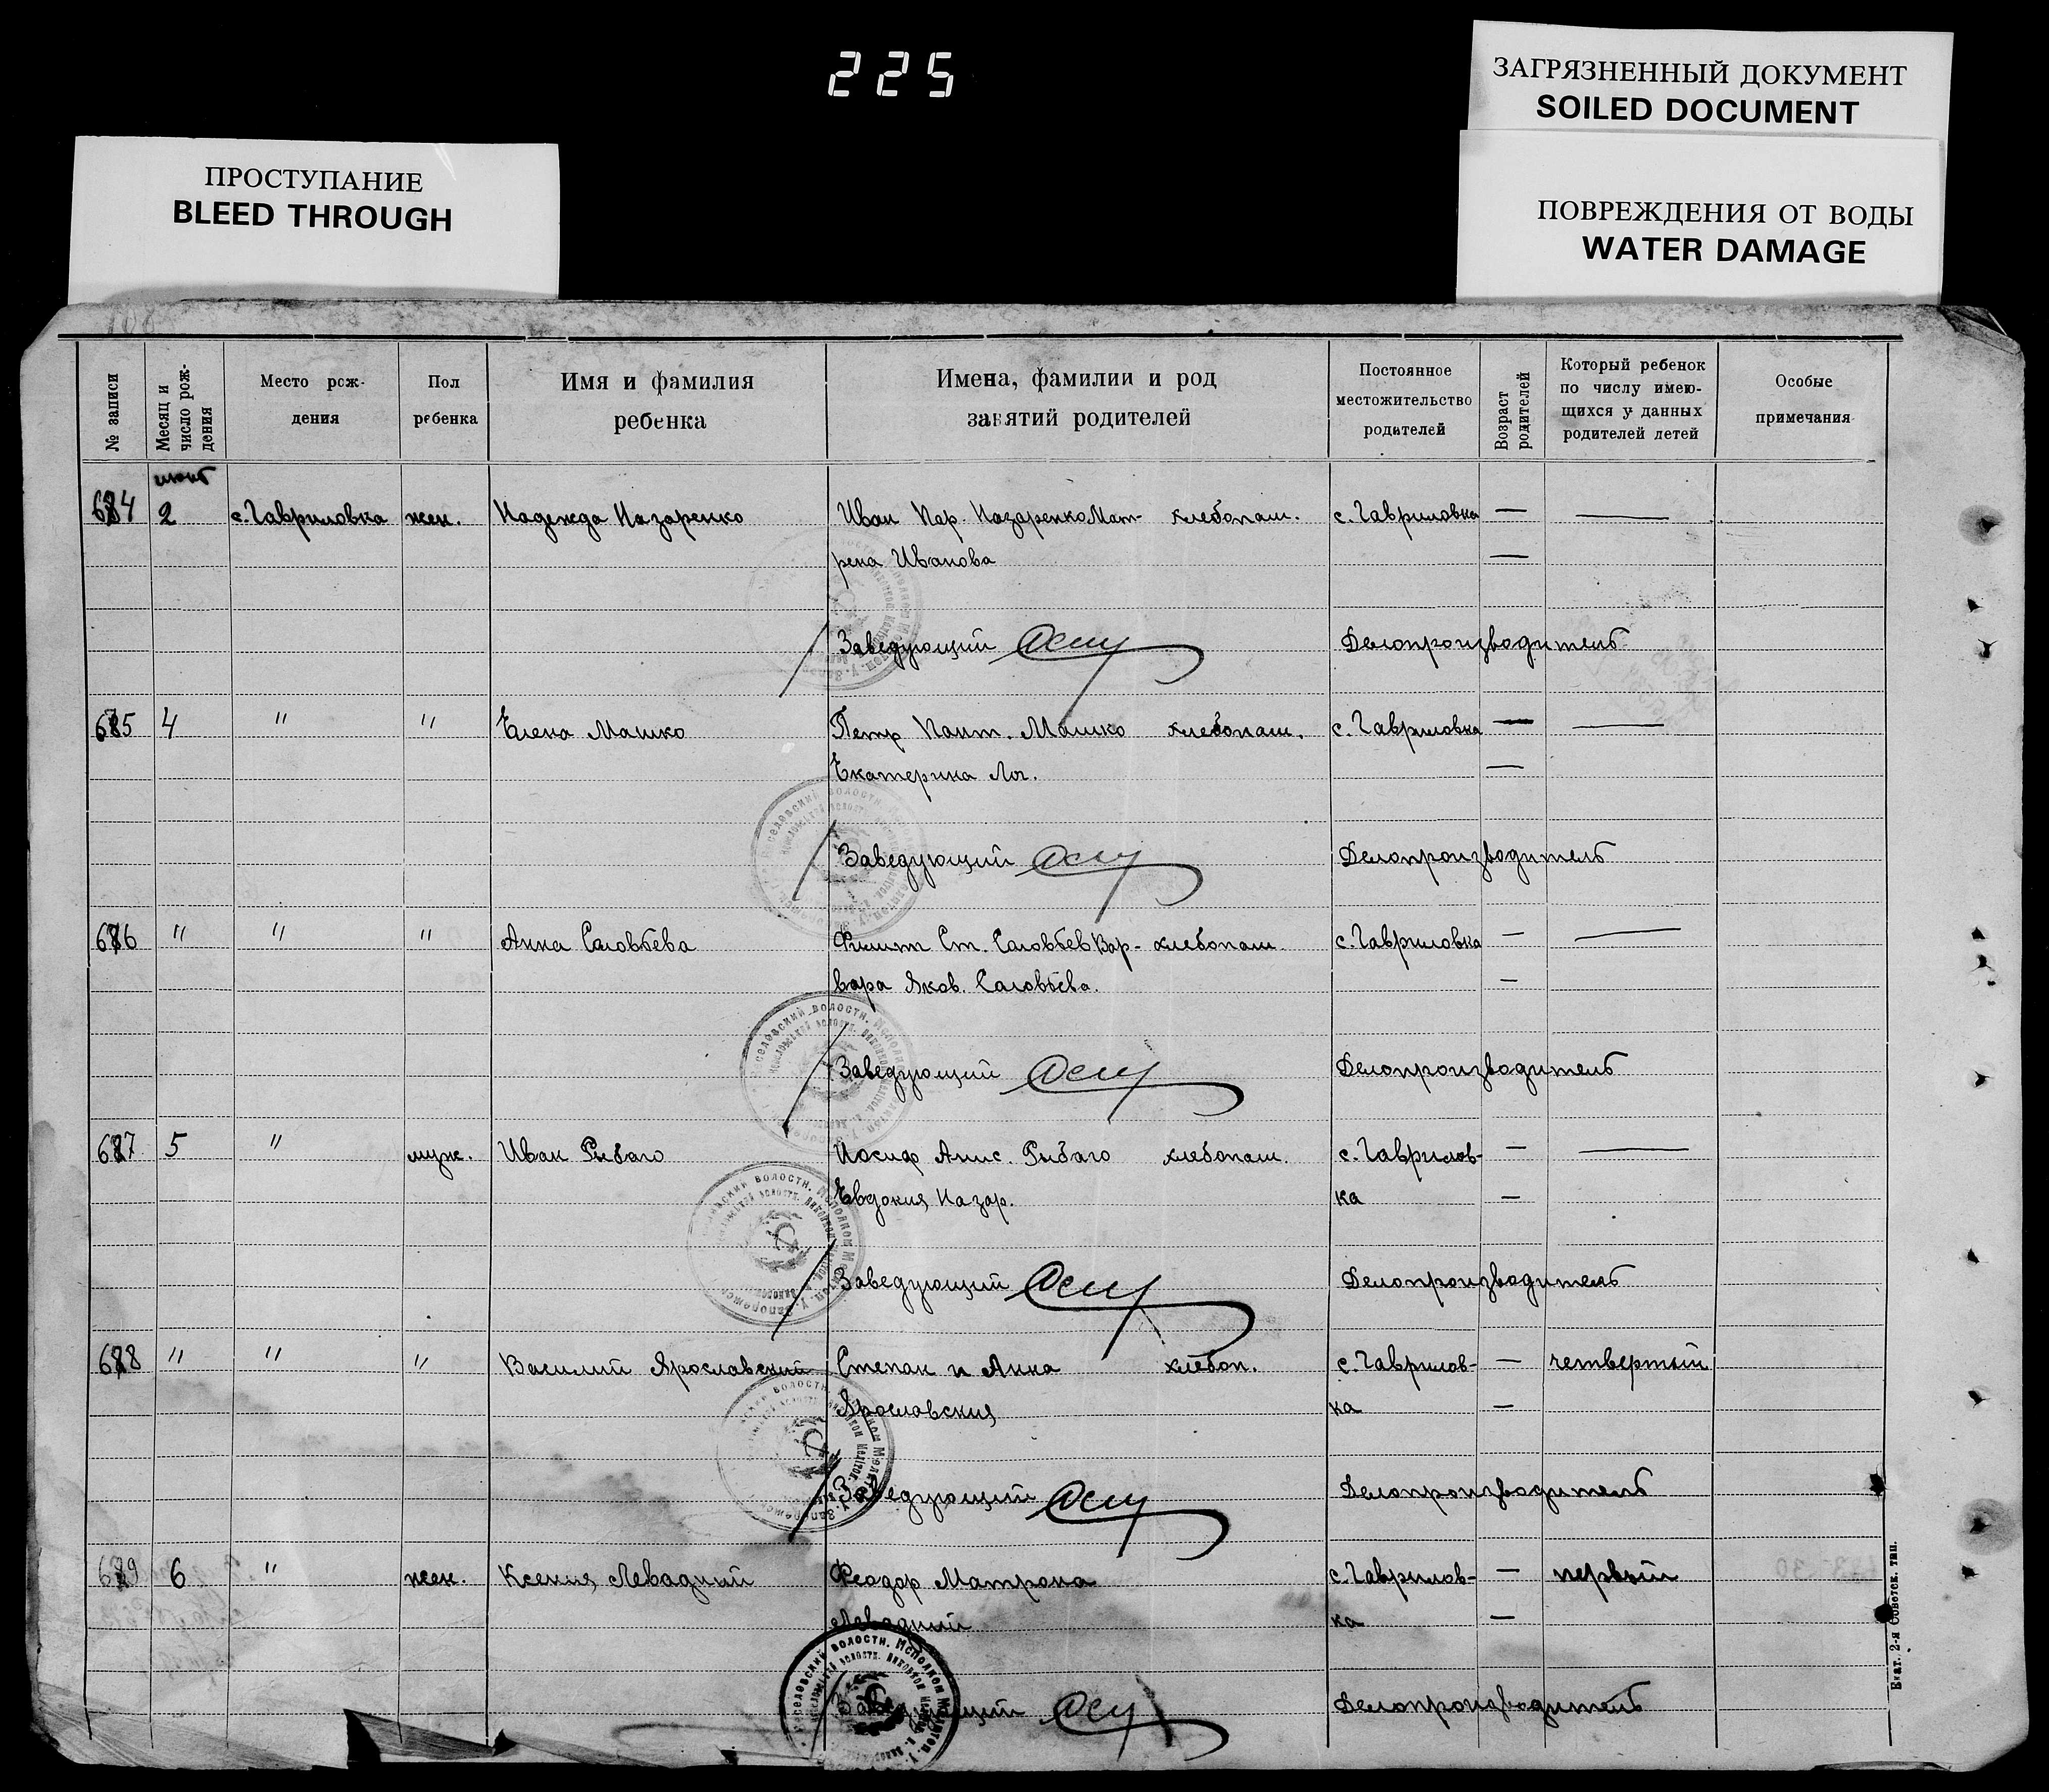 225
ЗАГРЯЗНЕННЫЙ ДОКУМЕНТ
SOILED DOCUMENT
ПРОСТУПАНИЕ
BLEED THROUGH
ПОВРЕЖДЕНИЯ ОТ ВОДЫ
WATER DAMAGE
№ записи
Месяц и число рож- дения
Место рож- дения
Пол ребенка
Имя и фамилия ребенка
Имена, фамилии и род занятий родителей
Постоянное местожительство родителей
Возраст родителей
Который ребенок по числу имею- щихся у данных родителей детей
Особые примечания
684 2 с. Гавриловка жен. Надежда Назаренко Иван Пар. Назаренко Мат- хлебопаш. с. Гавриловка — —
рена Иванова —
Заведующий Делопроизводитель
685 4 " " Елена Машко Петр Пант. Машко хлебопаш. с. Гавриловка — —
Екатерина —
Заведующий Делопроизводитель
686 " " " Анна Соловьева Филип Ст. Соловьев Вар- хлебопаш. с. Гавриловка — —
вара Яков. Соловьева. —
Заведующий Делопроизводитель
687 5 " муж. Иван Рибало Иосиф Анис. Рибало хлебопаш. с. Гаврилов- — —
Евдокия Назар. ка —
Заведующий Делопроизводитель
688 " " " Василий Ярославский Степан и Анна хлебоп. с. Гаврилов- — четвертый
Ярославския ка —
Заведующий Делопроизводитель
689 6 " жен. Ксения Левадний Феодор Матрона с. Гаврилов- — первый
Левадний ка —
Заведующий Делопроизводитель
Екат. 2-я Советск. тип.